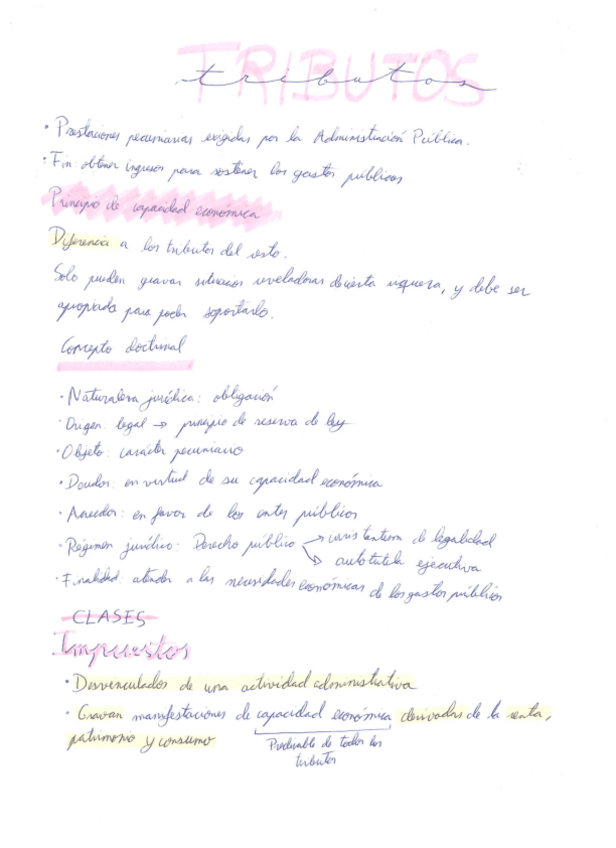 TRIBUTOS
tributos
• Prestaciones pecuniarias exigidas por la Administración Pública.
• Fin: obtener ingresos para sostener los gastos públicos
Principio de capacidad económica
Diferencia a los tributos del resto.
Solo pueden gravar situacios reveladoras de cierta riqueza, y debe ser
apropiada para poder soportarlo.
Concepto doctrinal
• Naturaleza jurídica: obligación
• Origen: legal → principio de reserva de ley
• Objeto: carácter pecuniario
• Deudor: en virtud de su capacidad económica
• Acreedor: en favor de los entes públicos
• Régimen jurídico: Derecho público → iuris tantum de legalidad
→ autotutela ejecutiva
• Finalidad: atender a las necesidades económicas de los gastos públicos
CLASES
Impuestos
• Desvenculados de una actividad administrativa
• Gravan manifestaciones de capacidad económica derivadas de la renta,
patrimonio y consumo
Predicable de todos los
tributos